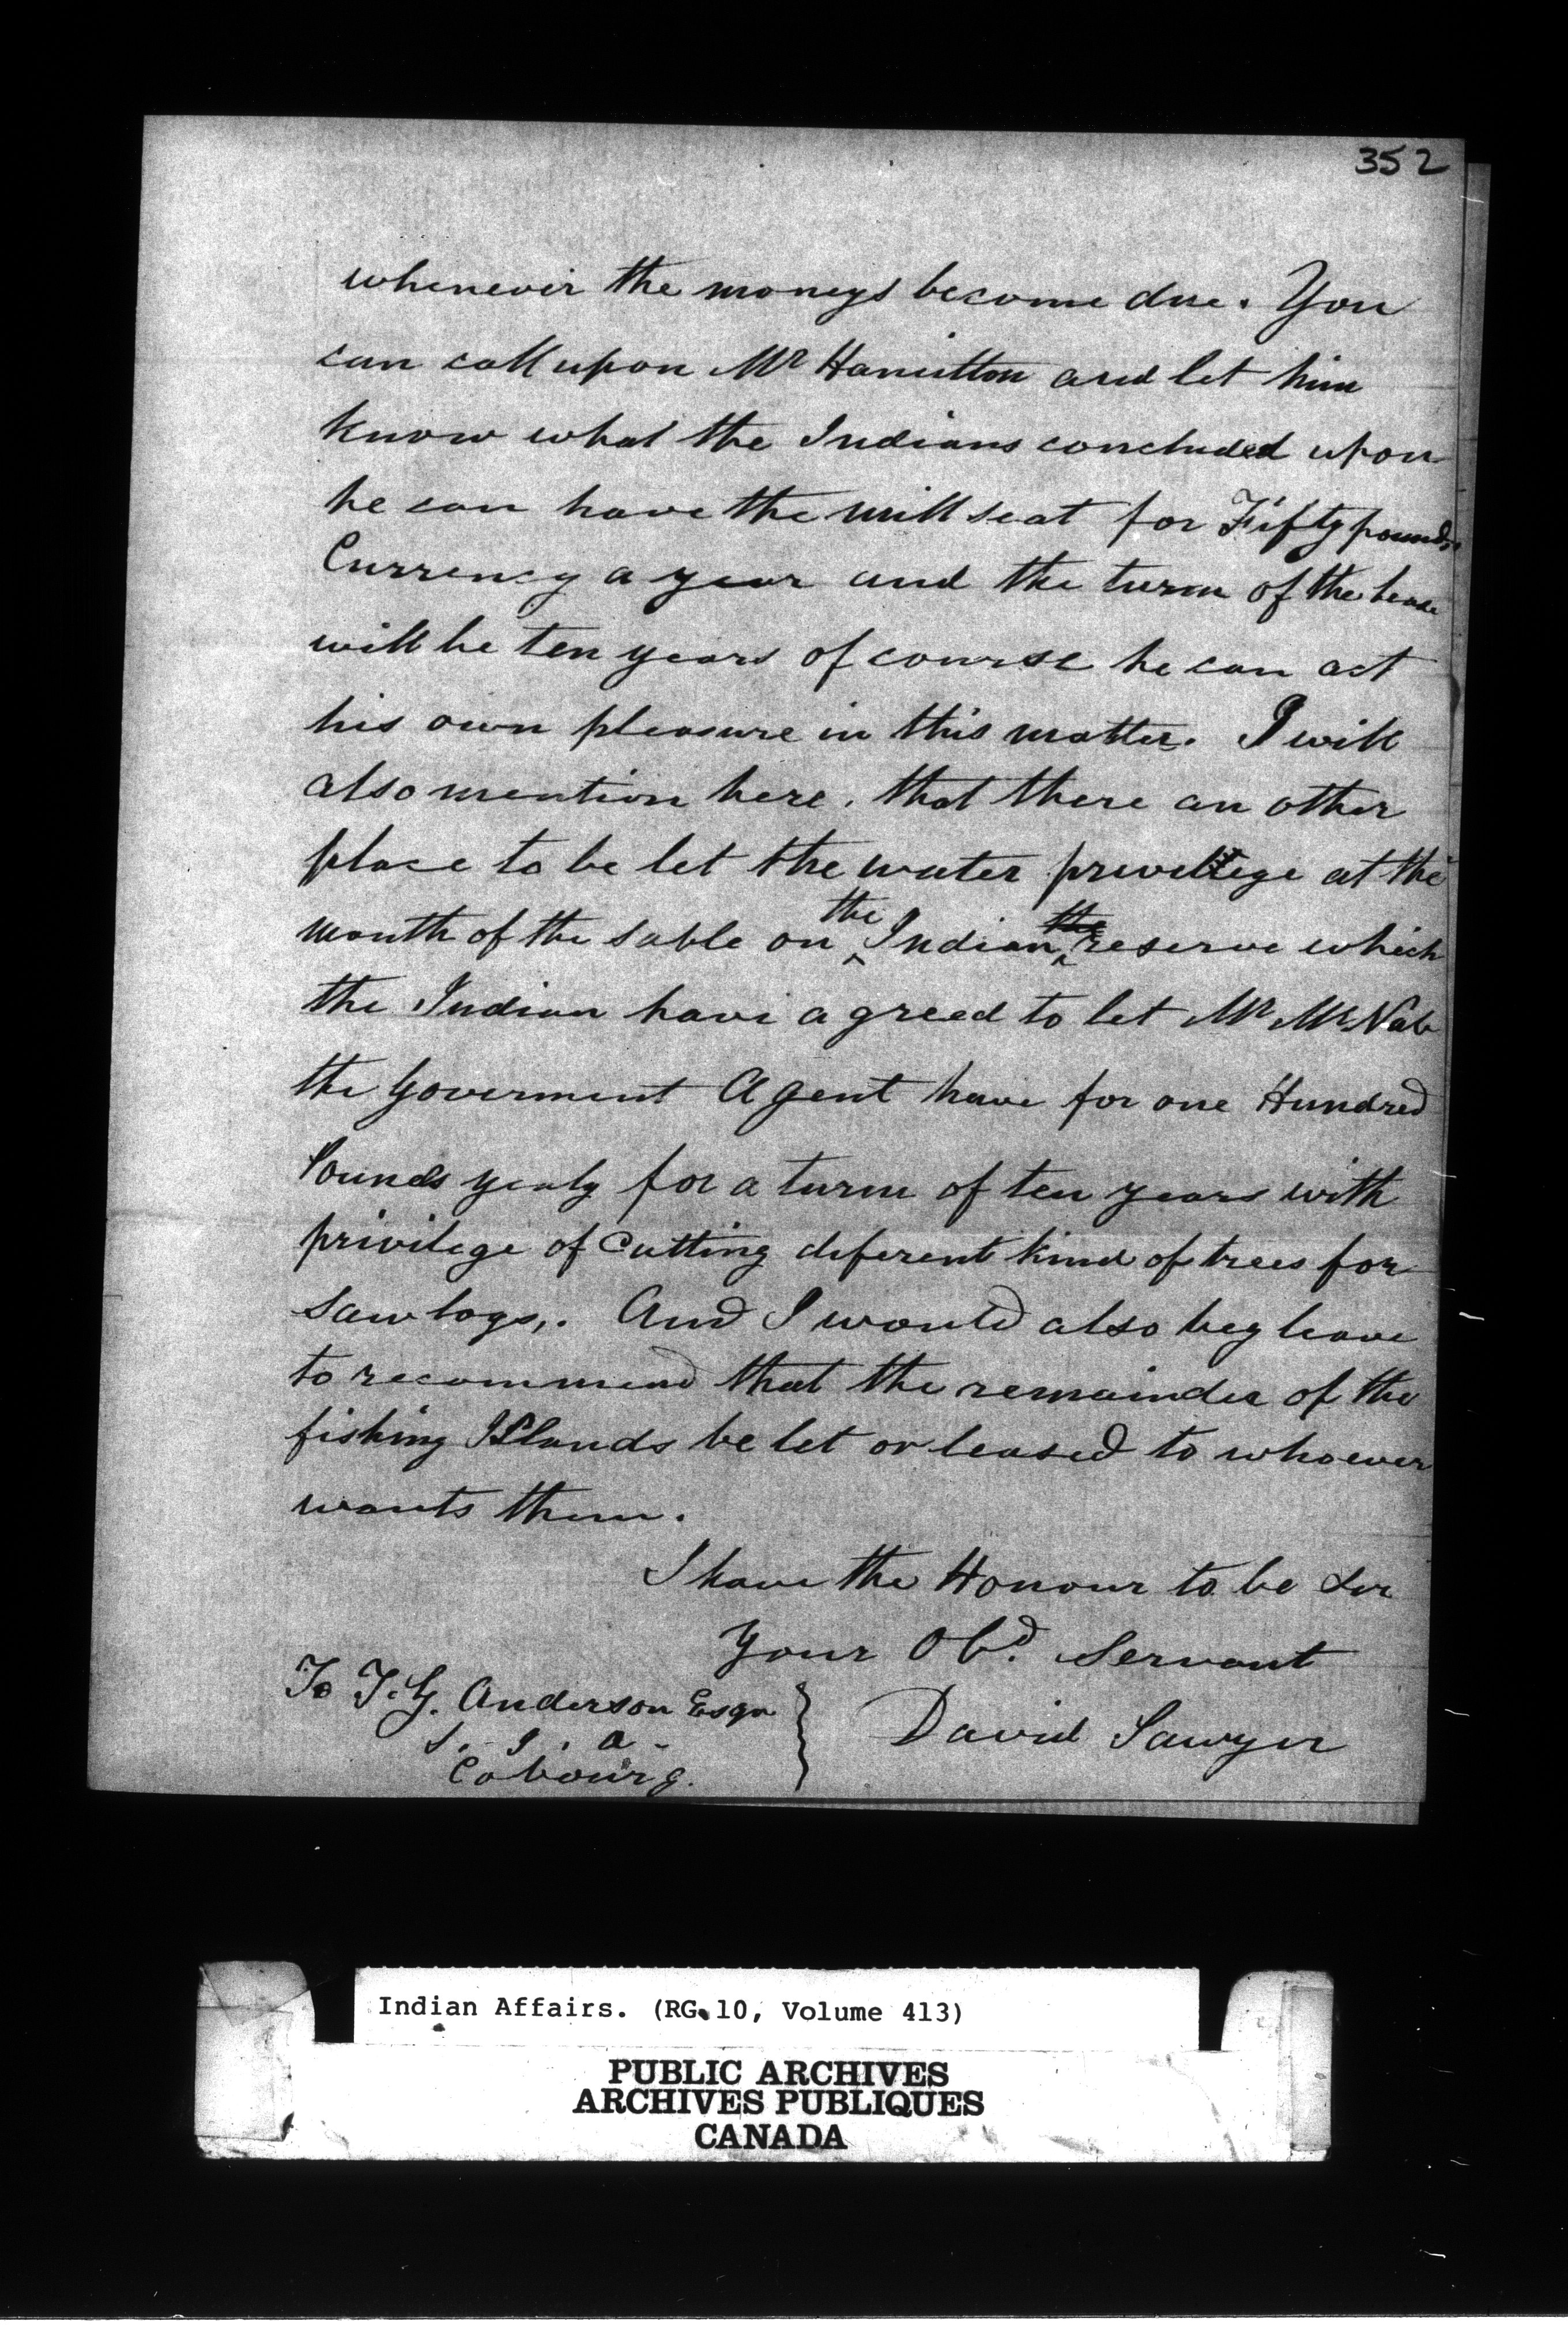 352
whenever the moneys become due. You
can call upon Mr Hamilton and let him
know what the Indians concluded upon
he can have the mill seat for Fifty pounds
Currency a year and the turm of the lease
will be ten years of course he can act
his own pleasure in this matter. I will
also mention here. that there an other
place to be let the water privellege at the
mouth of the sable on the Indian the reserve which
the Indian have agreed to let Mr McNab
the Goverment Agent have for one Hundred
Pounds yealy for a turm of ten years with
privilege of Cutting diferent kind of trees for
Saw logs,. And I would also beg leave
to recommend that the remainder of the
fishing Islands be let or leased to whoever
wants them.
I have the Honour to be Sir
Your Obd. Servant
To T. G. Anderson Esqr
David Sawyer
S. I. A.
Cobourg.
Indian Affairs. (RG. 10, Volume 413)
PUBLIC ARCHIVES
ARCHIVES PUBLIQUES
CANADA